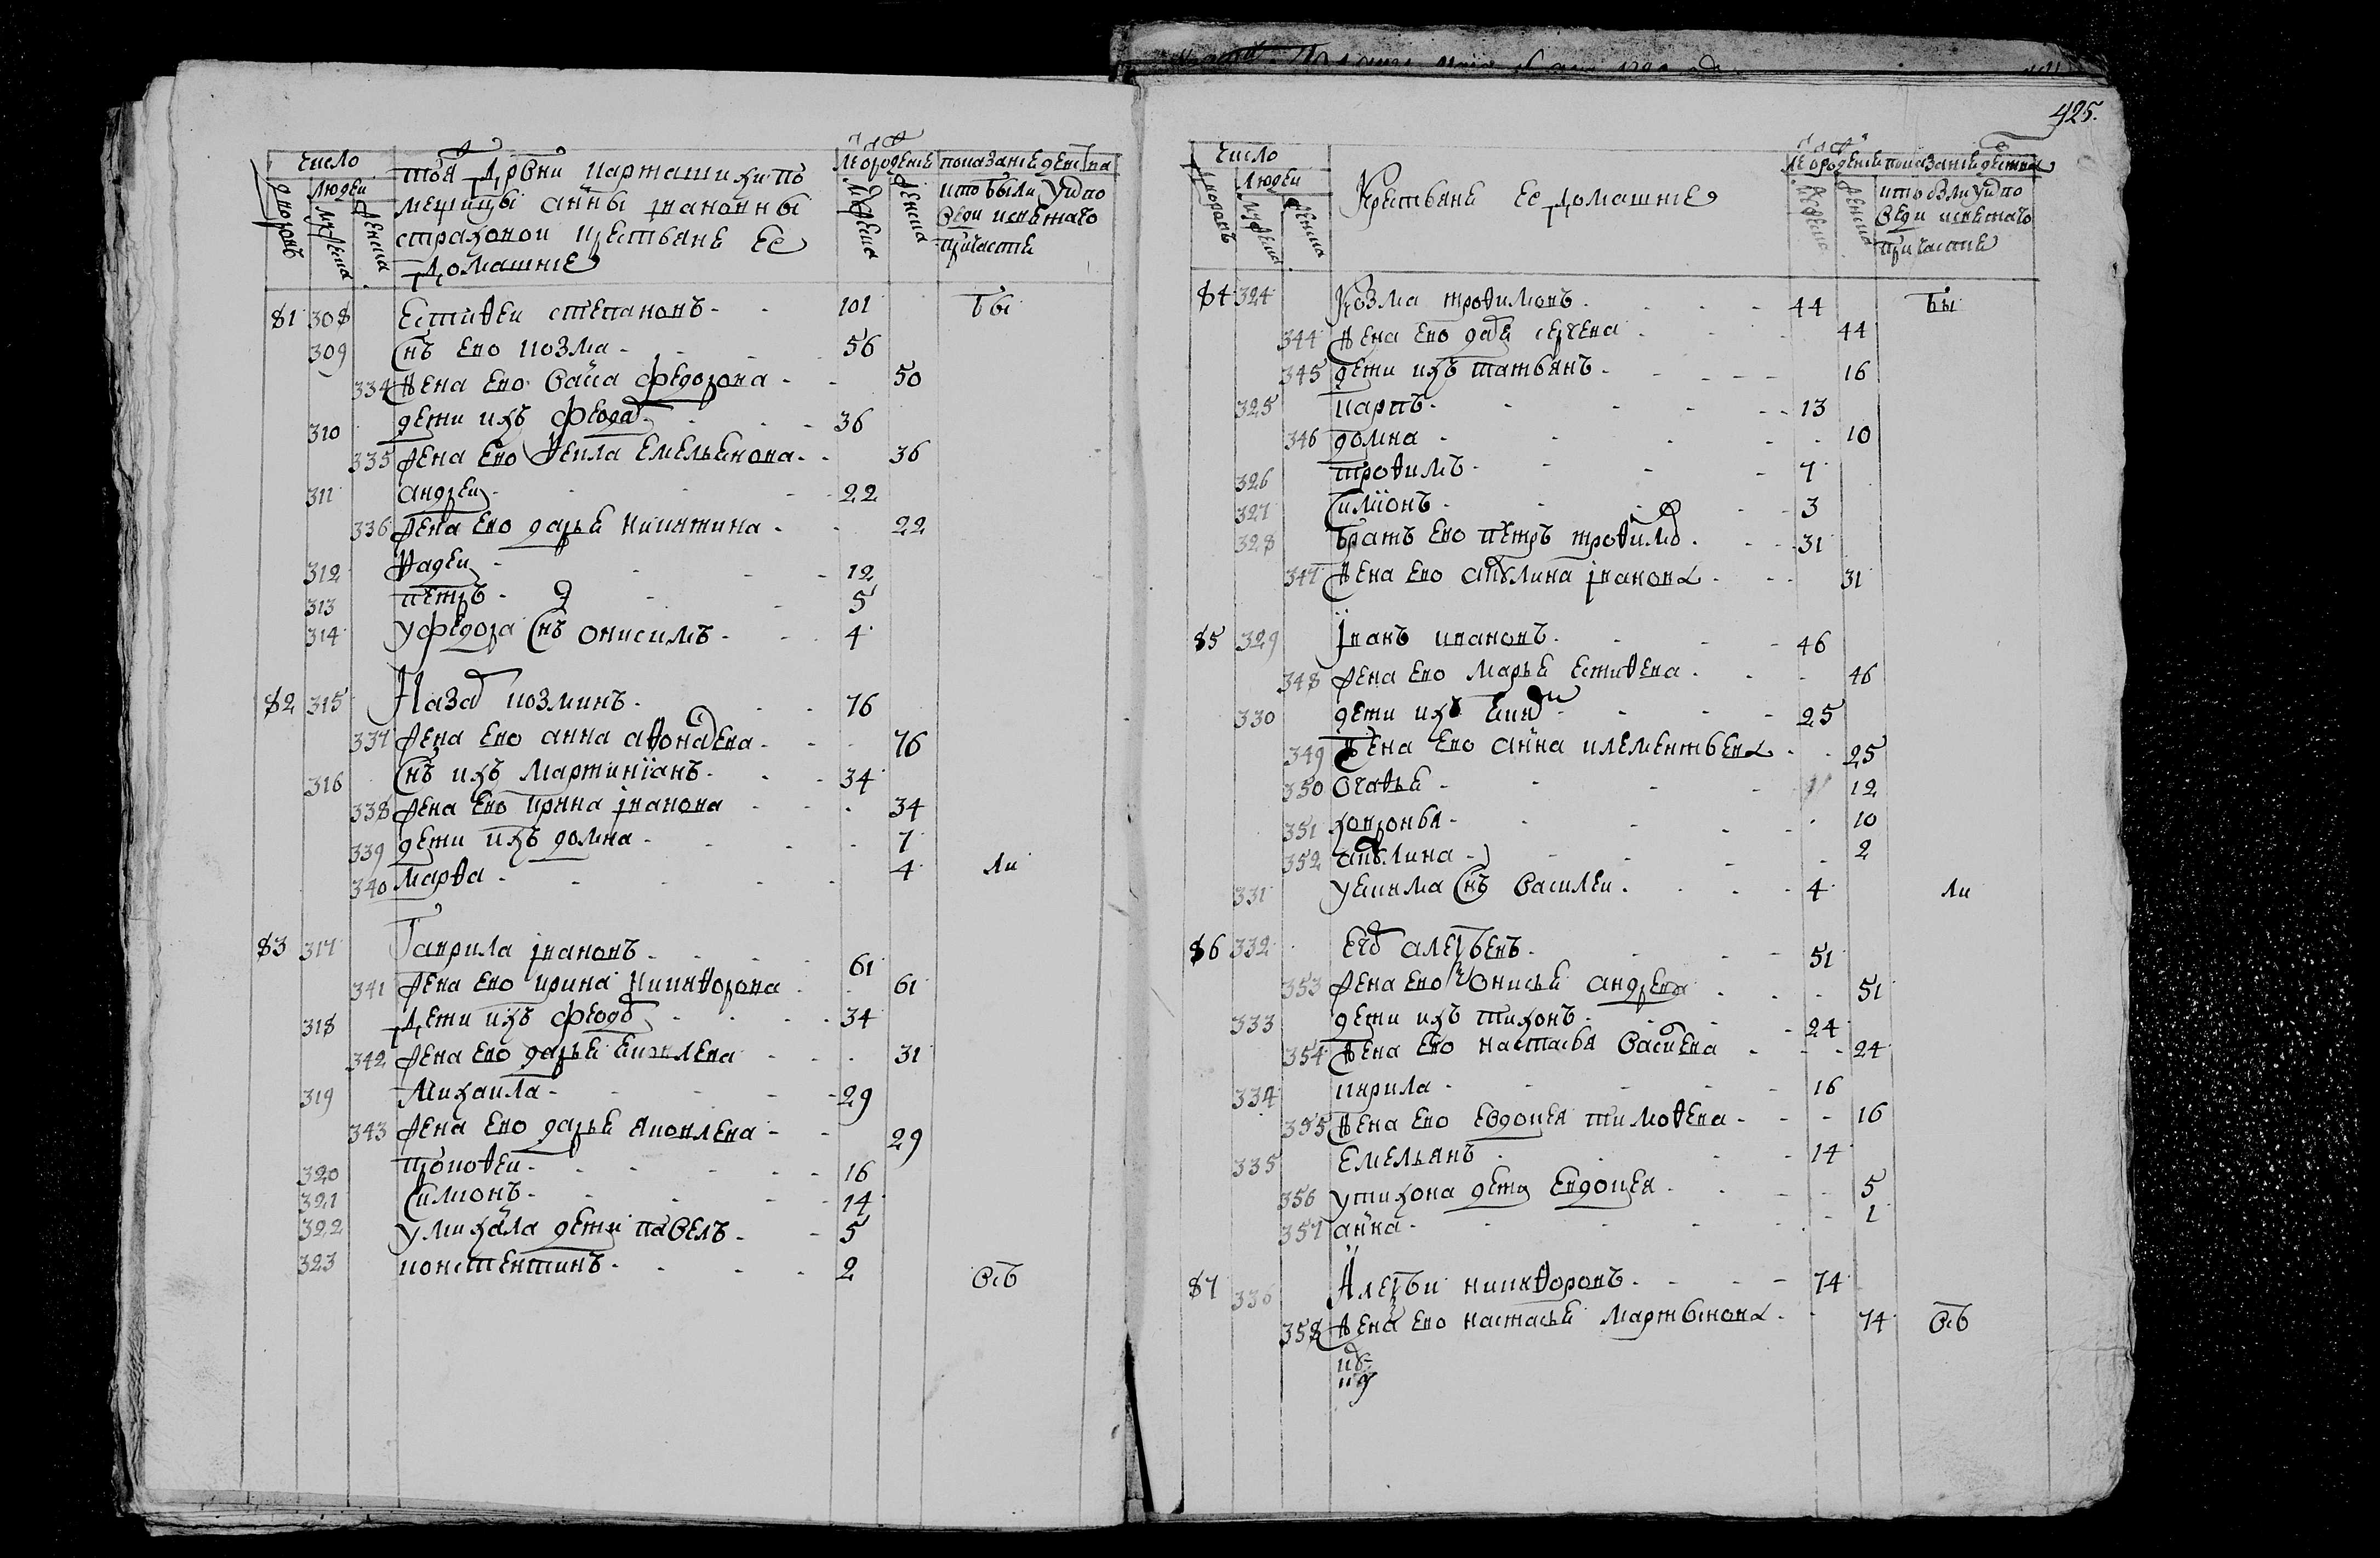 425.
число
людей
дворовъ
мужеска
женска
тоя дрвни карташихи по
мещицы анны ивановны
страховой крестьяне ее
домашние
лѣ рожение
мужеска
женска
показание действа
кто были у испо
веди и святаго
причастия
81 308 Естифей степановъ 101 бы
309 Снъ ево козма 56
334 жена ево васа федорова 50
310 дети ихъ феодоръ 36
335 жена ево фекла емельянова 36
311 андрей 22
336 жена ево дарья никитина 22
312 фадей 12
313 петръ 5
314 у федора Снъ онисимъ 4
82 315 Назаръ козминъ 76
337 жена ево анна афонасева 76
316 Снъ ихъ мартиниянъ 34
338 жена ево ирина иванова 34
339 дети ихъ домна 7
340 марфа 4 ли
83 317 Гаврила ивановъ 61
341 жена ево ирина никифорова 61
318 дети ихъ феодоръ 34
342 жена ево дарья яковлева 31
319 Михаила 29
343 жена ево дарья яковлева 29
320 прокофей 16
321 Симионъ 14
322 у михайла дети павелъ 5
323 констентинъ 2 всѣ
число
людей
дворовъ
мужеска
женска
Крестьяне ее домашние
лѣ рожение
мужеска
женска
показание действа
кто были у испо
веди и святаго
причастия
84 324 Козма трофимовъ 44 бы
344 жена ево дарья сергева 44
345 дети ихъ татьяна 16
325 карпъ 13
346 домна 10
326 трофимъ 7
327 Симионъ 3
328 братъ ево петръ трофимовъ 31
347 жена ево акулина иванова 31
85 329 Іванъ ивановъ 46
348 жена ево марья естифева 46
330 дети ихъ 25
349 жена ево анна клементьева 25
350 огафья 12
351 ховронья 10
352 акулина 2
331 у екима Снъ василей 4 ли
86 332 Егоръ алексѣевъ 51
353 жена ево онисья андрева 51
333 дети ихъ тихонъ 24
354 жена ево настасья василева 24
334 кирила 16
355 жена ево евдокея тимофева 16
335 емельянъ 14
356 у тихона дети евдокея 5
357 анна 1
87 336 Алексѣй никифоровъ 74
358 жена ево настасья мартынова 74 всѣ